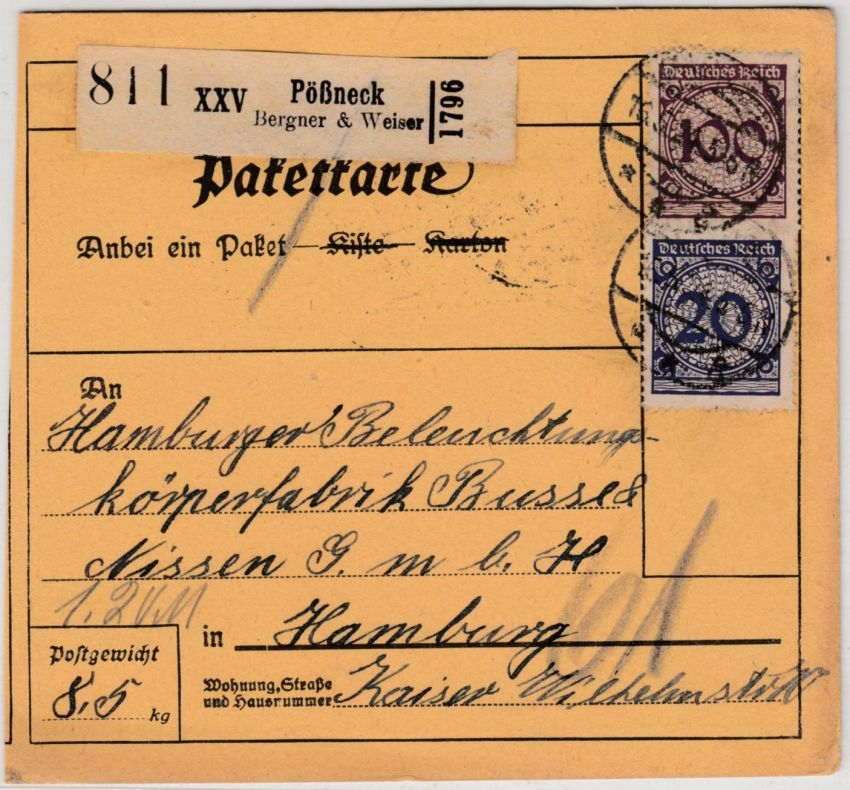 811 XXV Pößneck
Bergner & Weiser
1796
Deutsches Reich
100
Deutsches Reich
20
Paketkarte
Anbei ein Paket Kiste Karton
An
Hamburger Beleuchtungs-
körperfabrik Busse &
Nissen G. m b. H
1.20 M
in Hamburg
Postgewicht
8,5 kg
Wohnung, Straße
und Hausnummer Kaiser Wilhelmstr